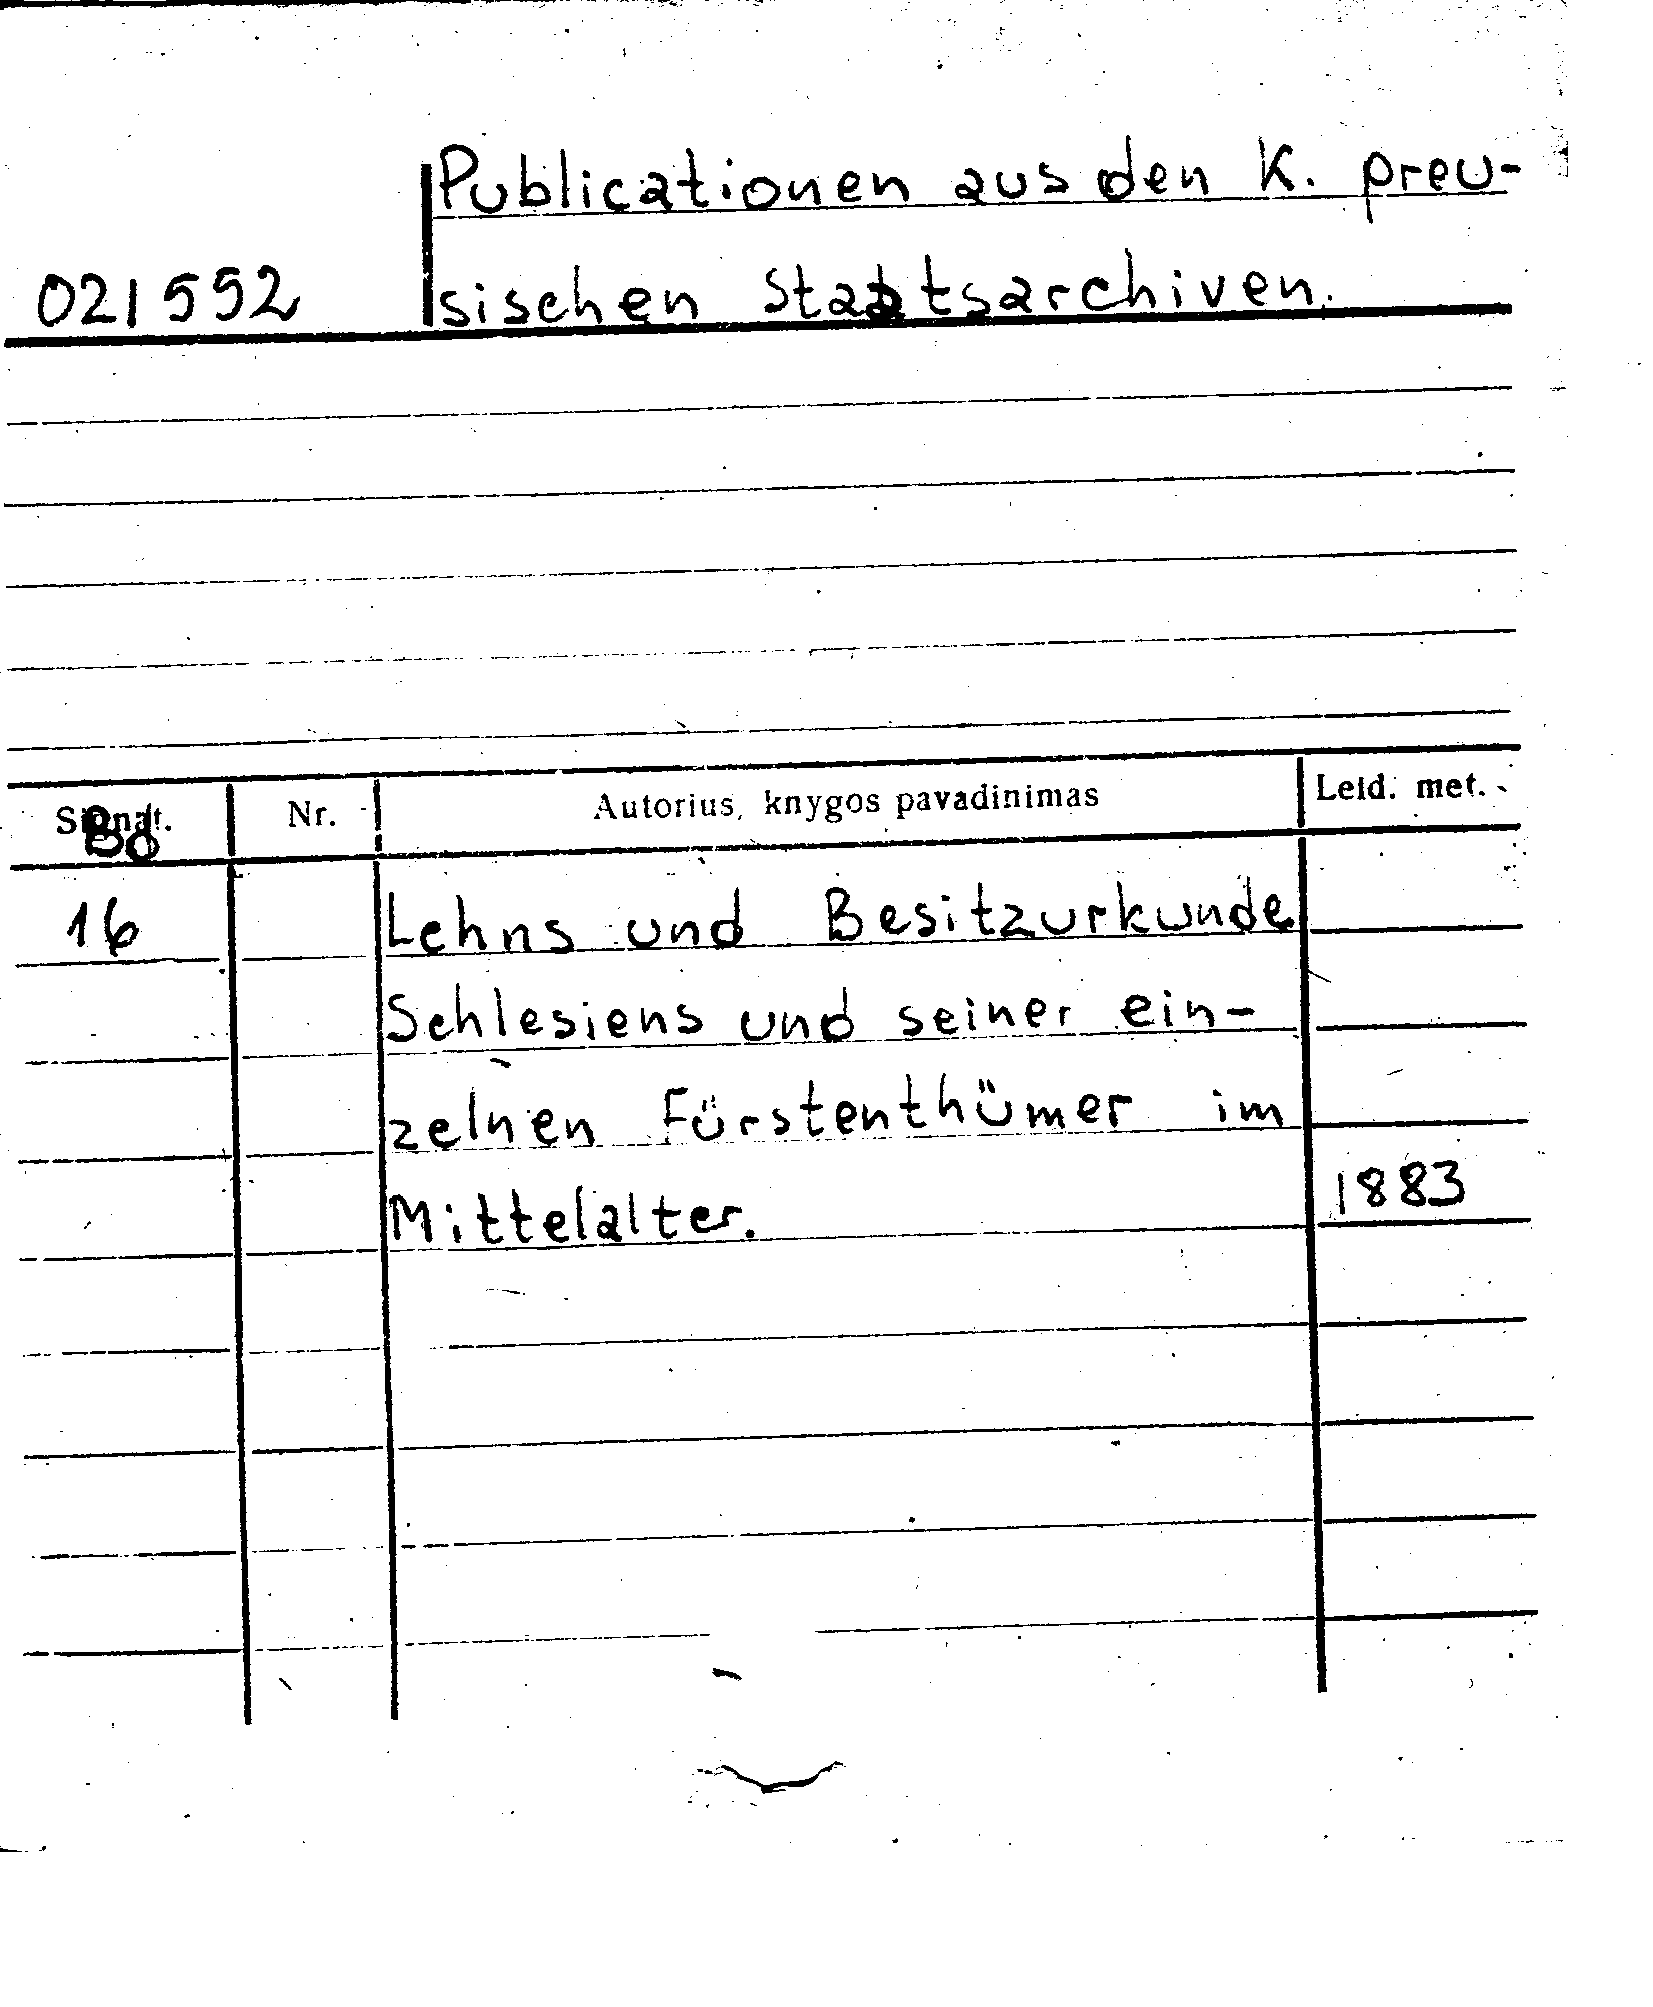 Publicationen aus den K. preu-
021592 sischen Staatsarchiven.
Signat. Nr. Autorius, knygos pavadinimas Leid. met.
Bd
16 Lehns und Besitzurkunde
Schlesiens und seiner ein-
zelnen Fürstenthümer im
Mittelalter. 1883